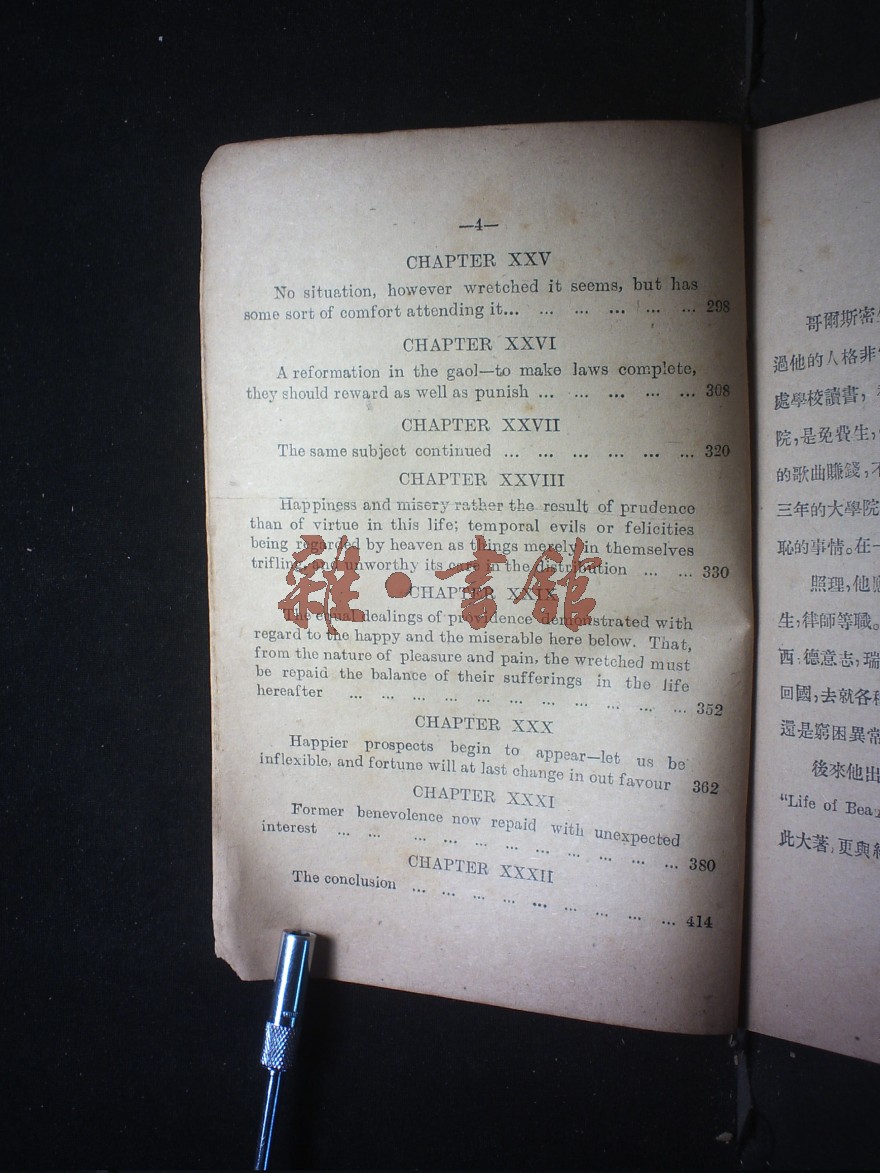 —4—
CHAPTER XXV
No situation, however wretched it seems, but has
some sort of comfort attending it... ... ... ... ... ... 298
CHAPTER XXVI
A reformation in the gaol—to make laws complete,
they should reward as well as punish ... ... ... ... ... 308
CHAPTER XXVII
The same subject continued ... ... ... ... ... ... 320
CHAPTER XXVIII
Happiness and misery rather the result of prudence
than of virtue in this life; temporal evils or felicities
being regarded by heaven as things merely in themselves
trifling, and unworthy its care in the distribution ... ... 330
CHAPTER XXIX
The equal dealings of providence demonstrated with
regard to the happy and the miserable here below. That,
from the nature of pleasure and pain, the wretched must
be repaid the balance of their sufferings in the life
hereafter ... ... ... ... ... ... ... ... ... ... ... 352
CHAPTER XXX
Happier prospects begin to appear—let us be
inflexible, and fortune will at last change in out favour 362
CHAPTER XXXI
Former benevolence now repaid with unexpected
interest ... ... ... ... ... ... ... ... ... ... ... 380
CHAPTER XXXII
The conclusion ... ... ... ... ... ... ... ... ... 414
雜·書館
哥爾斯密
過他的人格非
處學校讀書,
院,是免費生,
的歌曲賺錢,
三年的大學院
恥的事情。在一
照理,他
生,律師等職。
西,德意志,瑞
回國,去就各
還是窮困異常
後來他出
"Life of
此大著,更與